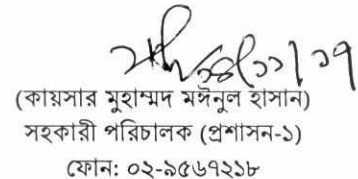 ১৪/১১/১৭
(কায়সার মুহাম্মদ মঈনুল হাসান)
সহকারী পরিচালক (প্রশাসন-১)
ফোন: ০২-৯৫৬৭২১৮